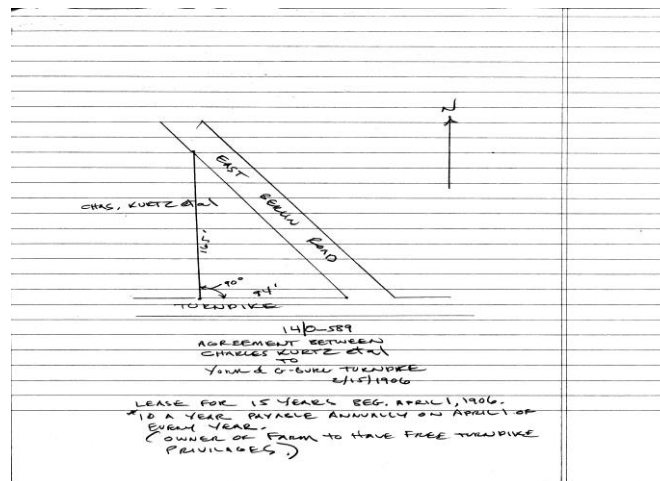 N
EAST BERLIN ROAD
CHAS. KURTZ et al
165'
90°
94'
TURNPIKE
14/O-589
AGREEMENT BETWEEN
CHARLES KURTZ et al
TO
YORK & G-BURG TURNPIKE
2/15/1906
LEASE FOR 15 YEARS BEG. APRIL 1, 1906.
$10 A YEAR PAYABLE ANNUALLY ON APRIL 1 OF
EVERY YEAR.
(OWNER OF FARM TO HAVE FREE TURNPIKE
PRIVILAGES.)